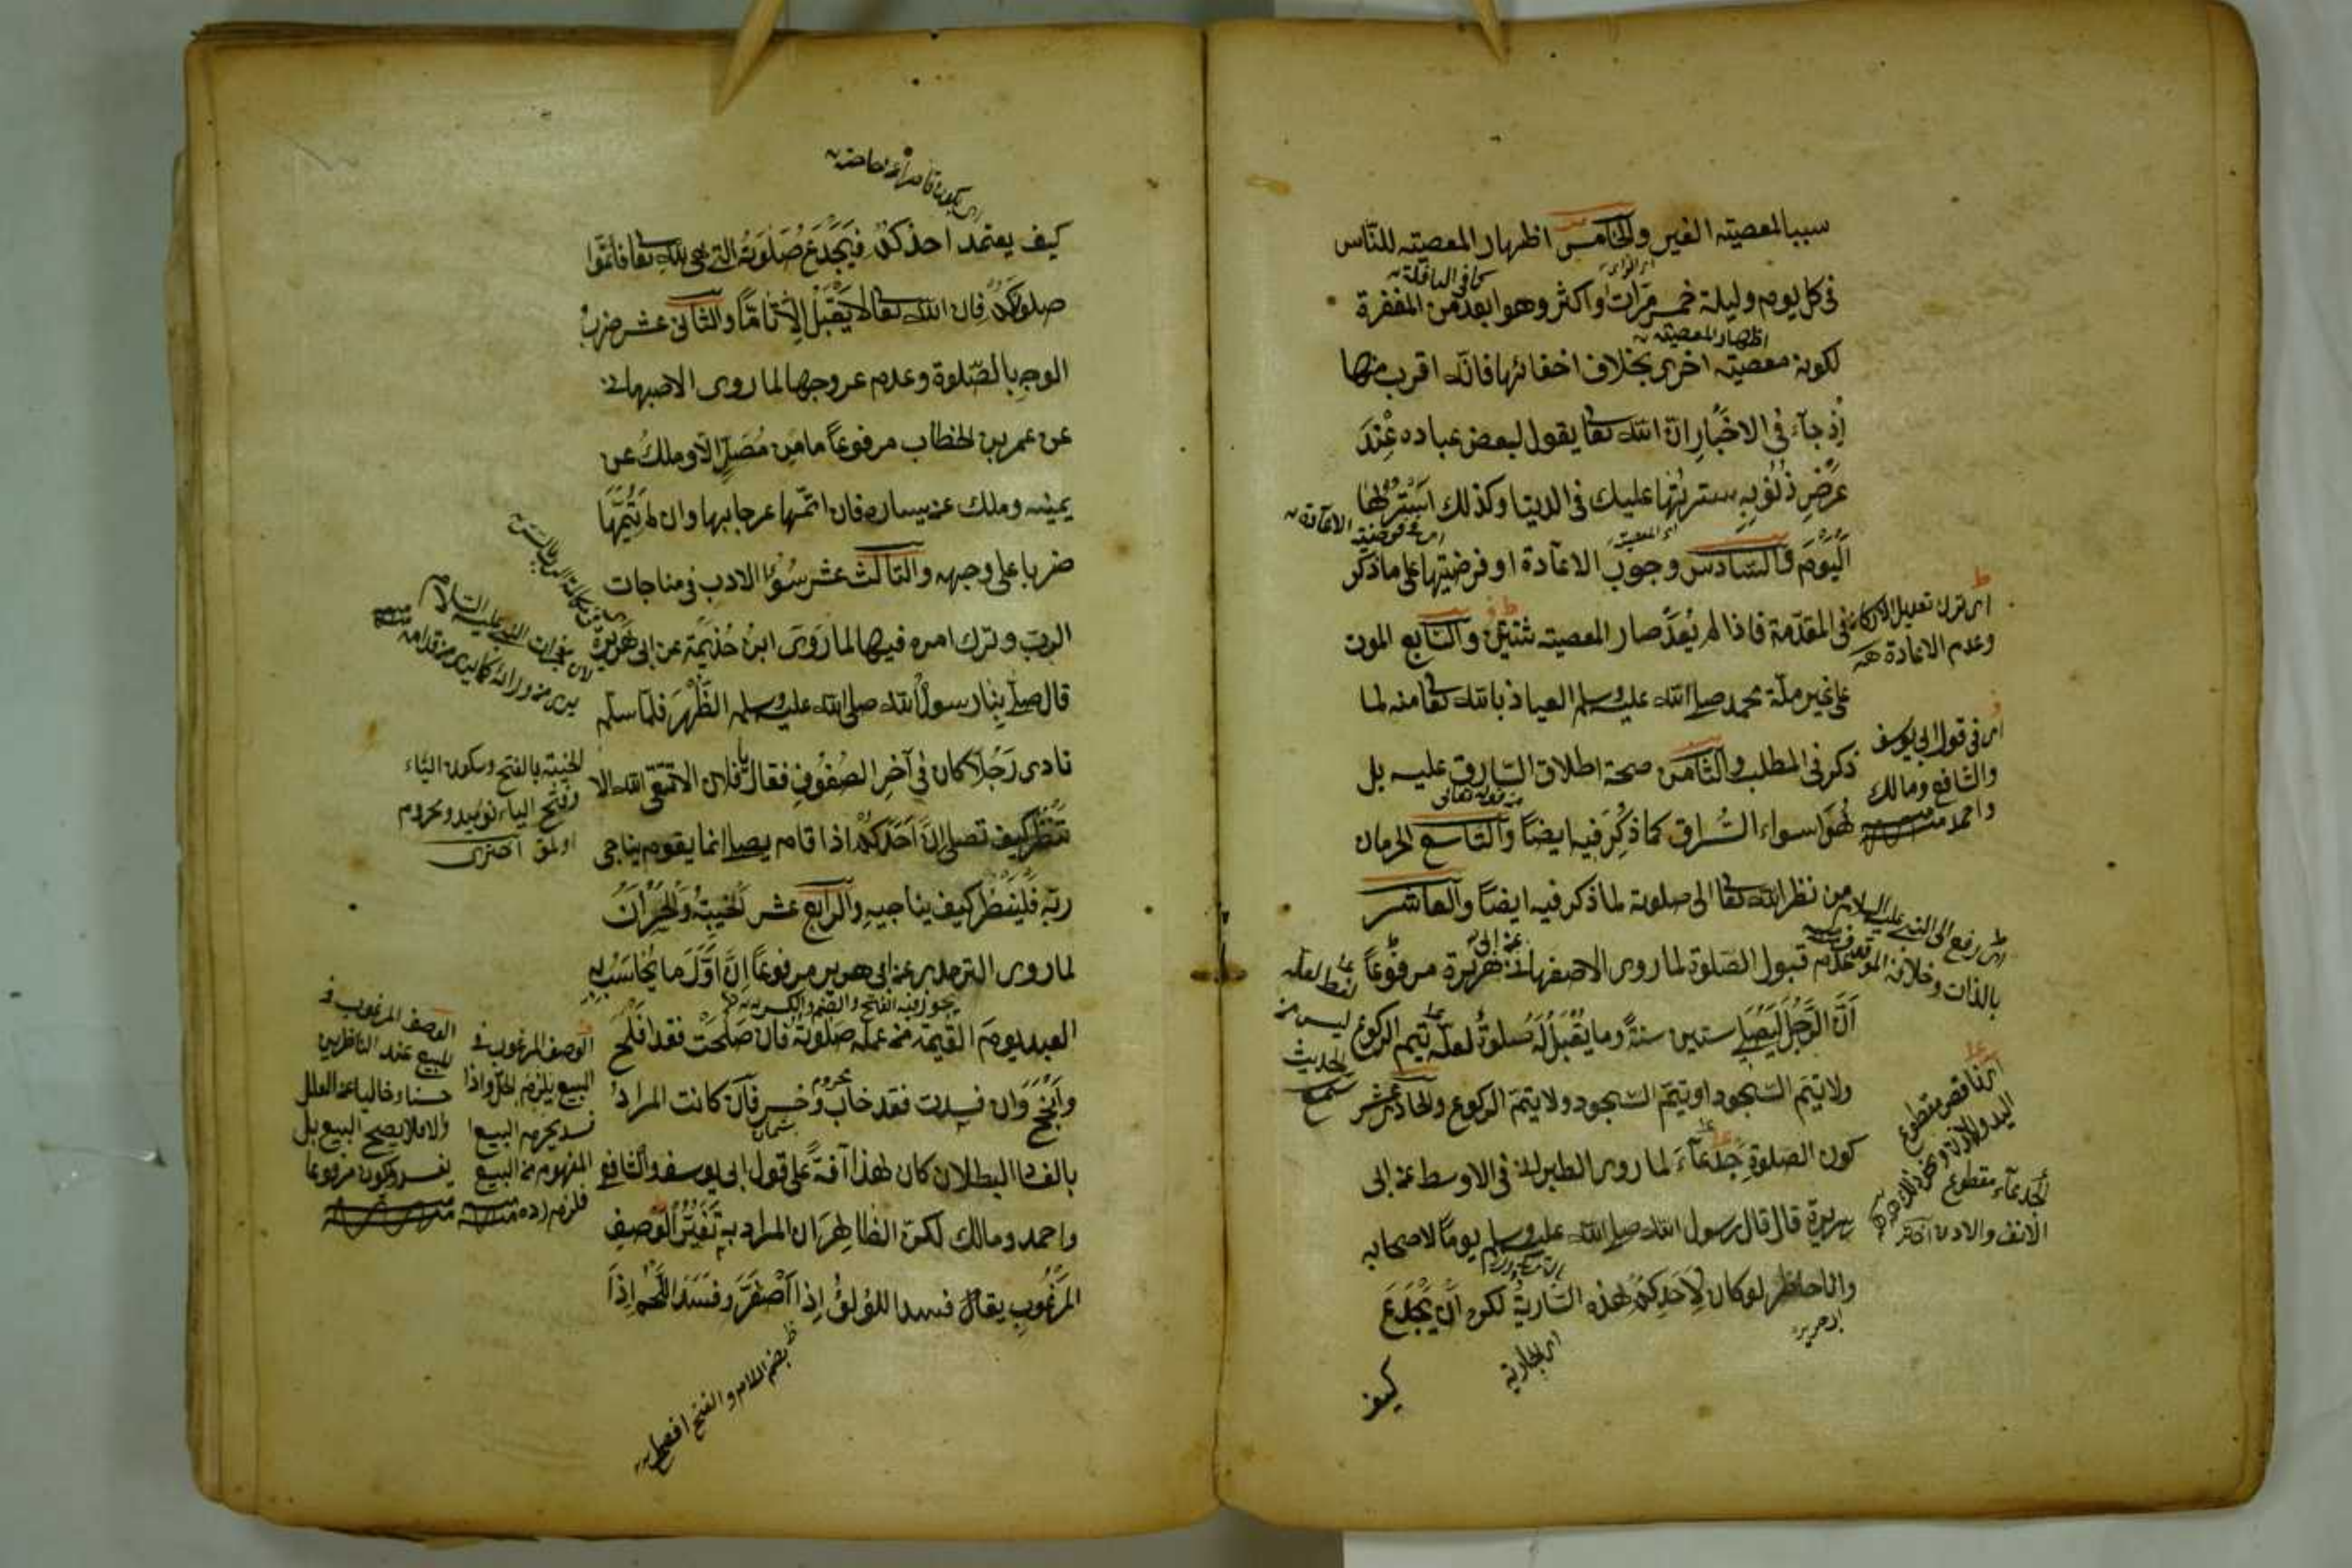 سببا لمعصيته الغير والخامس اظهار المعصيته للناس
في كل يوم وليلة خمس مرات واكثر وهو ابعد من المغفرة
لكونه معصيته اخرى بخلاف اخفائها فانه اقرب منها
اذ جاء في الاخبار ان الله تعا يقول لبعض عباده عند
عرض ذنوبه سترتها عليك في الدنيا وكذلك استرها
اليوم والسادس وجوب الاعادة او فرضيتها على ما ذكر
في المقدمة فاذا لم يعد صار المعصيته ثنتين والسابع الموت
على غير ملة محمد صلى الله عليه وسلم العياذ بالله تعا منه لما
ذكر في المطلب والثامن صحة اطلاق السارق عليه بل
هو اسواء السراق كما ذكر فيه ايضا والتاسع الحرمان
من نظر الله تعا الى صلوته لما ذكر فيه ايضا والعاشر
عدم قبول الصلوة لما روى الاصفهاني عن ابى هريرة مرفوعا
ان الرجل ليصلى ستين سنة وما يقبل له صلوة لعله يتم الركوع
ولا يتم السجود او يتم السجود ولا يتم الركوع والحادى عشر
كون الصلوة جدعاء لما روى الطبرانى في الاوسط عن ابى
هريرة قال قال رسول الله صلى الله عليه وسلم يوما لاصحابه
وانا حاضر لو كان لاحدكم هذه السارية لكره ان يجدع
كيف
كما في النافلة
اظهار المعصيته
اى المعصية
اى ترك تعديل الاركان
وعدم الاعادة
اى في قول ابى يوسف
والشافعى ومالك
واحمد
من قوله تعالى
اى رفع الى النبي عليه السلام
بالذات وخلافه الموقوف
لفظ لعله
ليس من
الحديث
اى ناقص مقطوع
الجدعاء مقطوع
الانف والاذن
اى الجارية
كيف يعتمد احدكم فيجدع صلوته التى هى لله تعا فاتموا
صلوتكم فان الله تعا لا يقبل الا تاما والثانى عشر ضرب
الوجه بالصلوة وعدم عروجها لما روى الاصبهانى
عن عمر بن الخطاب مرفوعا ما من مصل الا وملك عن
يمينه وملك عن يساره فان اتمها عرجا بها وان لم يتمها
ضربا على وجهه والثالث عشر سوء الادب في مناجات
الرب وترك امره فيها لما روى ابن خذيمة عن ابى هريرة
قال صلى بنا رسول الله صلى الله عليه وسلم الظهر فلما سلم
نادى رجلا كان في آخر الصفوف فقال يا فلان الا تتقى الله الا
تنظر كيف تصلى ان احدكم اذا قام يصلى انما يقوم يناجى
ربه فلينظر كيف يناجيه والرابع عشر الخيبة والخسران
لما روى الترمذى عن ابى هريرة مرفوعا ان اول ما يحاسب به
العبد يوم القيمة من عمله صلوته فان صلحت فقد افلح
وانجح وان فسدت فقد خاب وخسر فان كانت المراد
بالفساد البطلان كان هذا آفة على قول ابى يوسف والشافعى
واحمد ومالك لكن الظاهر ان المراد به تغير الوصف
المرغوب يقال فسد اللؤلؤ اذا اصفر وفسد اللحم اذا
يجوز فيه الفتح والضم والكسر
محروم
لان معجزات النبي عليه السلام
يرى من ورائه كما يرى من قدامه
الخيبة بالفتح وسكون الياء
وفتح الباء نوميد ومحروم
اولمق اخترى
الوصف المرغوب في
البيع يلزم الحل واذا
فسد يحرم البيع
المفهوم من البيع
فلزم رده
الوصف المرغوب في
المبيع عند الناظرين
حسنا وخاليا عن العلل
والا فلا يصح البيع بل
بضم اللام والفتح افصح